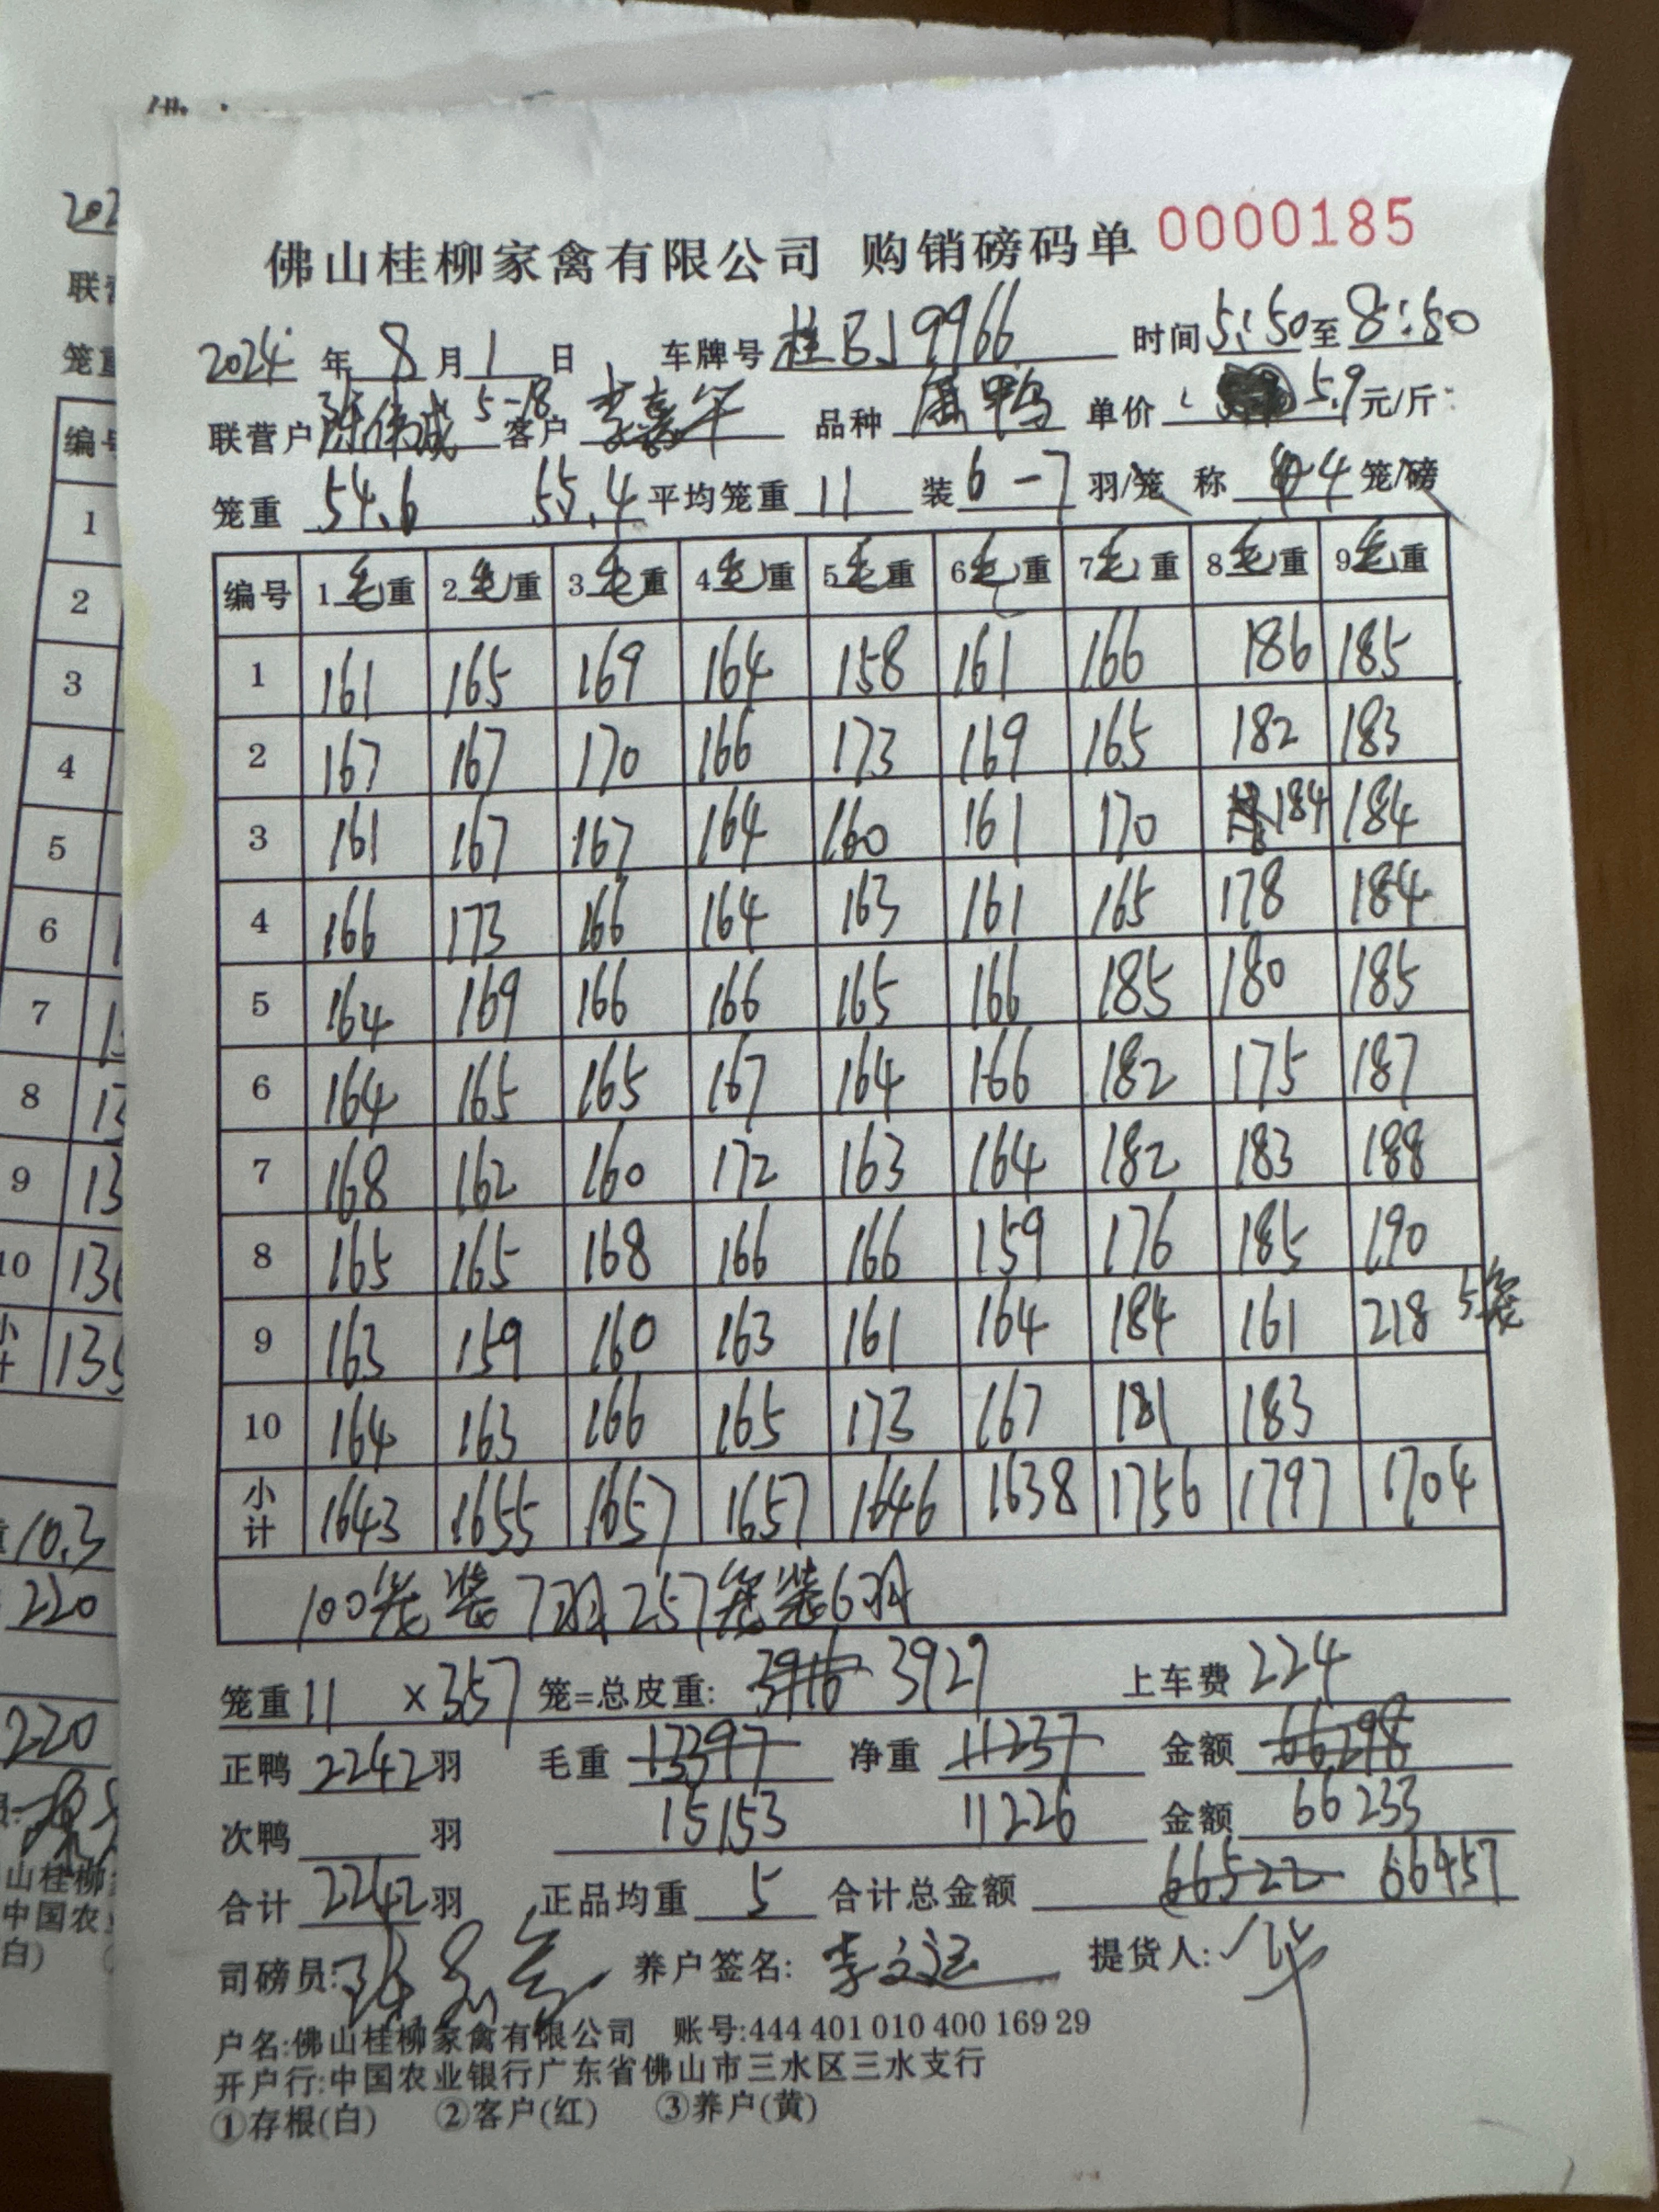 佛山桂柳家禽有限公司 购销磅码单 0000185
2024 年 8 月 1 日 车牌号 桂BJ9966 时间 5:50 至 8:50
联营户 陈伟成 5-18 客户 李嘉年 品种 鸭 单价 5.9 元/斤
笼重 54.6 55.4 平均笼重 11 装 6-7 羽/笼 称 4 笼/磅
编号 1毛重 2毛重 3毛重 4毛重 5毛重 6毛重 7毛重 8毛重 9毛重
1 161 165 169 164 158 161 166 186 185
2 167 167 170 166 173 169 165 182 183
3 161 167 167 164 160 161 170 184 184
4 166 173 166 164 163 161 165 178 184
5 164 169 166 166 165 166 185 180 185
6 164 165 165 167 164 166 182 175 187
7 168 162 160 172 163 164 182 183 188
8 165 165 168 166 166 159 176 185 190
9 163 159 160 163 161 164 184 161 218 5笼
10 164 163 166 165 173 167 181 183
小计 1643 1655 1657 1657 1646 1638 1756 1797 1704
100笼装7羽 257笼装6羽
笼重 11 × 357 笼=总皮重: 3916 3927 上车费 224
正鸭 2242 羽 毛重 13397 净重 11237 金额 66298
次鸭 羽 15153 11226 金额 66233
合计 2242 羽 正品均重 5 合计总金额 66522 66457
司磅员: 养户签名: 李文运 提货人:
户名:佛山桂柳家禽有限公司 账号:444 401 010 400 169 29
开户行:中国农业银行广东省佛山市三水区三水支行
①存根(白) ②客户(红) ③养户(黄)